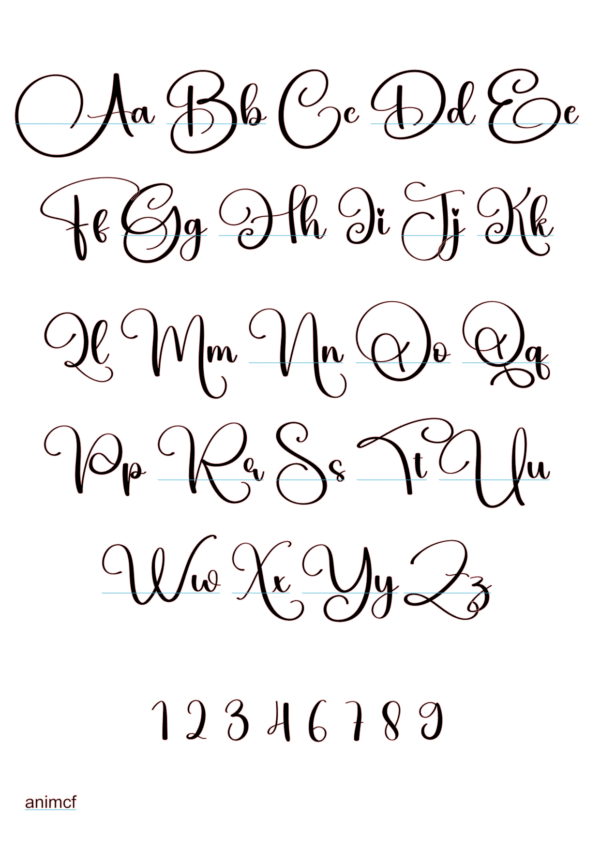 Aa Bb Cc Dd Ee
Ff Gg Hh Ii Jj Kk
Ll Mm Nn Oo Qq
Pp Rr Ss Tt Uu
Ww Xx Yy Zz
1 2 3 4 6 7 8 9
animcf